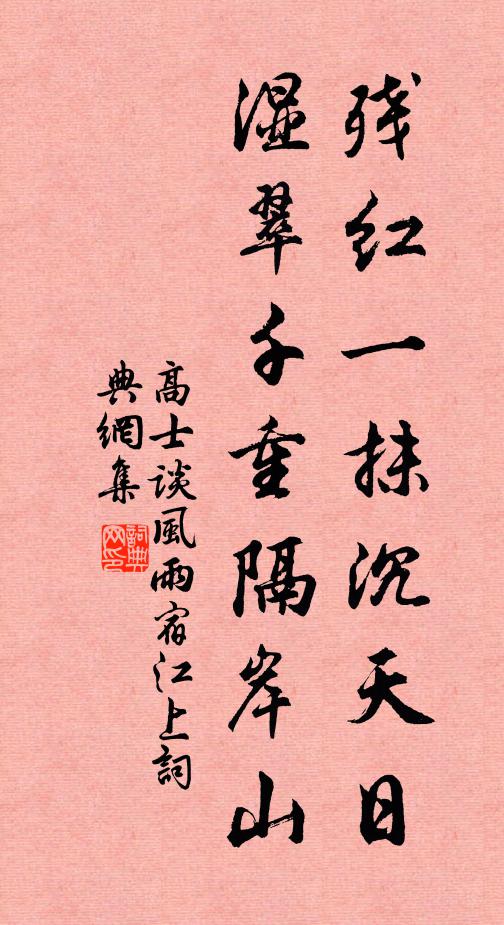 残红一抹沉天日
湿翠千重隔岸山
高士谈風雨宿江上詞
典網集
詞典
网印